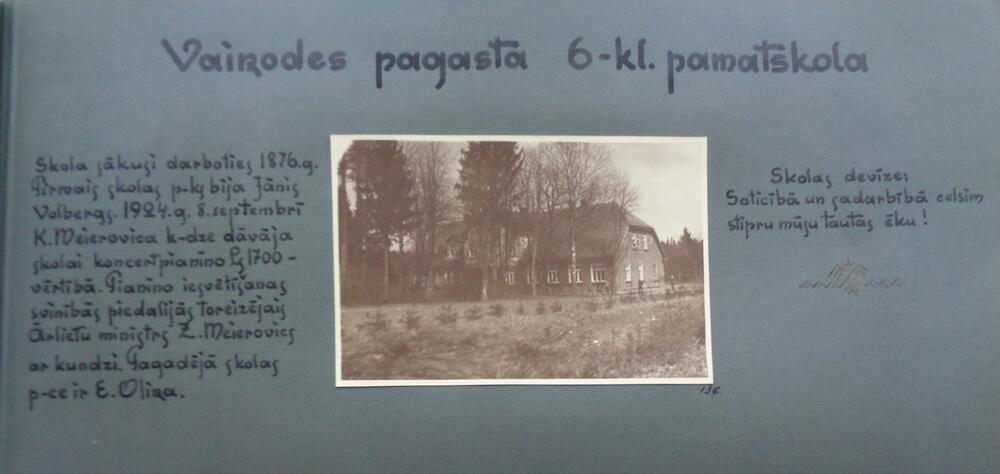 Vaiņodes pagasta 6-kl. pamatskola
Skola sākusi darboties 1876.g.
Pirmais skolas p-ks bija Jānis
Volbergs. 1924.g. 8.septembrī
K.Meierovica k-dze dāvāja
skolai koncertpianino Ls 1700-
vērtībā. Pianino iesvētīšanas
svinībās piedalījās toreizējais
Ārlietu ministrs Z.Meierovics
ar kundzi. Tagadējā skolas
p-ce ir E. Oliņa.
Skolas devīze:
Saticībā un sadarbībā celsim
stipru mūju tautas ēku!
136.